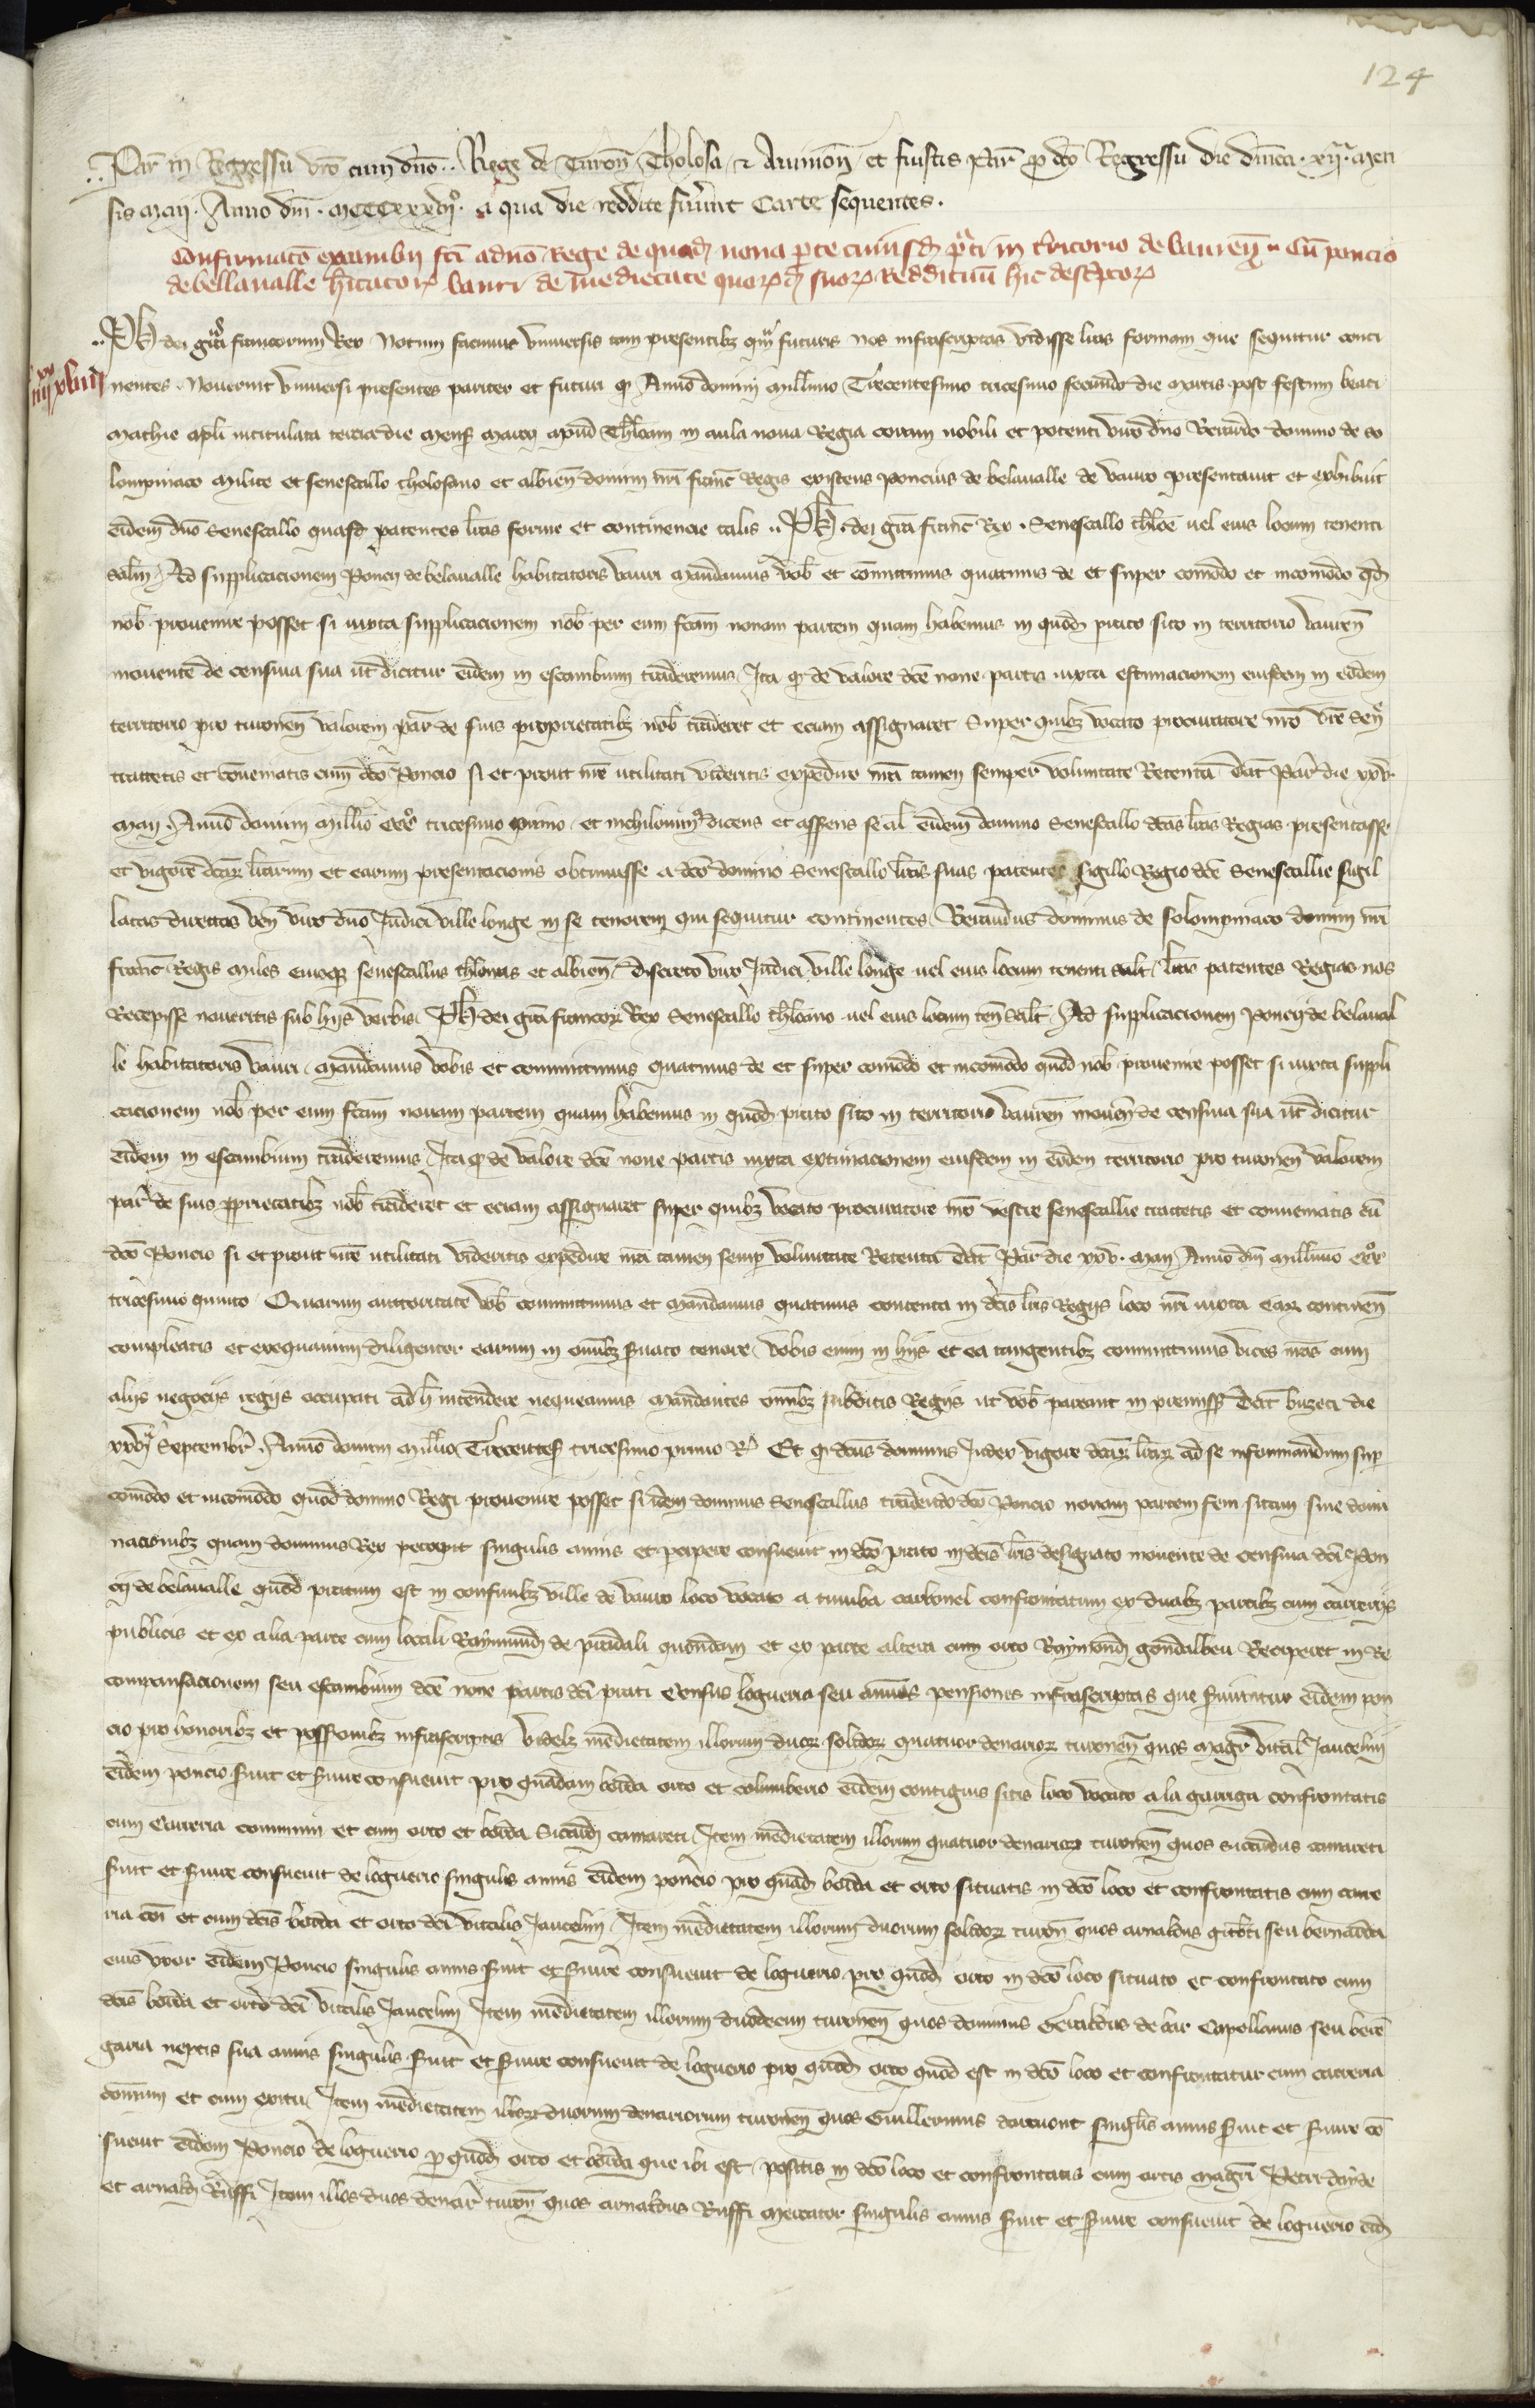 124
Par̄ in Regressu vr̄o cum dn̄o .. Rege de Turon̄ Tholosa & Auinion̄ et fuistis Par̄ p̱ dc̄o Regressu die dn̄ica . xij. men
sis Maij . Anno dn̄i . Mcccxxxvjº. a qua die reddite fuerūt Carte sequentes .
Confirmatō excambij fc̄i a dn̄o Rege de quad̄ nona parte cuiusd̄ p̄ti in t̄ritorio de vauren̄ .. Cū poncio
de bellaualle h̄itatorꝝ vauri de medietate quorꝝd̄ suorꝝ Reddituū hic desc̄ptorꝝ
iiij xlvij
Ph̄ dei gr̄a francorum Rex Notum facimus vniuersis tam presentibꝫ qm̄ futuris nos infrascriptas vidisse lr̄as formam que sequitur conti
nentes . Nouerint vniuersi presentes pariter et futuri qꝫ Anno domini millīmo Trecentesimo tricesimo secundo die martis post festum beati
Mathie apl̄i intitulata tercia die mens̄ marcij apud Tholosam in aula noua Regia coram nobili et potenti viro dn̄o Beraudo domino de so
lompniaco milite et senescallo tholosano et albien̄ domini nr̄i franc̄ Regis existens Poncius de belaualle de vauro presentauit et exhibuit
eidem dn̄o Senescallo quasd̄ patentes lr̄as forme et continencie talis .. Ph̄ . dei gr̄a franc̄ Rex . Senescallo thol̄e uel eius locum tenenti
salt̄m Ad supplicacionem Poncij de belaualle habitatoris vauri mandamus vob̄ et com̄ittimus quatinus de et super com̄odo et incom̄odo qd̄
nob̄ prouenire posset si iuxta supplicacionem nob̄ per eum fc̄am nonam partem quam habemus in quod̄ prato sito in territorio vauren̄
mouente de censiua sua ut dicitur eidem in escambium traderemus . Ita qꝫ de valore dc̄e none partis iuxta estimacionem eiusdem in eodem
territorio pro turonen̄ valorem par̄ de suis proprietatibꝫ nob̄ traderet et eciam assignaret Super quibꝫ vocato procuratore nr̄o vr̄e Sen̄
tractetis et conueniatis cum dc̄o Poncio si et prout nr̄e utilitati videritis expedire nr̄a tamen semper voluntate Retenta Dat̄ Par̄ die xxv.
Maij . Anno domini mill̄io cccº tricesimo primo . et nichilomin⁹ dicens et asserens se al̄ eidem domino Senescallo dc̄as lr̄as Regias presentasse
et vigore dc̄arꝝ litterarum et earum presentacionis obtinuisse a dc̄o domino Senescallo lr̄as suas patentes sigillo Regio dc̄e Senescallie sigil
latas directas ven̄ viro dn̄o Judici ville longe in se tenorem qui sequitur continentes . Beraudus dominus de solompniaco domini nr̄i
franc̄ Regis miles eiusqꝫ senescallus tholosanus et albien̄ . discreto viro Judici ville longe uel eius locum tenenti salt̄ . lr̄as patentes Regias nos
Recepisse noueritis sub hijs verbis . Ph̄ dei gr̄a francorꝝ Rex Senescallo tholosano uel eius locum ten̄ Salt̄ . Ad supplicacionem Poncij de belaual
le habitatoris vauri . Mandamus vobis et committimus quatinus de et super com̄odo et incom̄odo quod nob̄ prouenire posset si iuxta suppli
cacionem nob̄ per eum fc̄am nonam partem quam habemus in quod̄ prato sito in territorio vauren̄ mouen̄ de censiua sua ut dicitur
eidem in escambium traderemus . Ita qꝫ de valore dc̄e none partis iuxta extimacionem eiusdem in eodem territorio pro turonen̄ valorem
par̄ de suis p̱prietatibꝫ nob̄ traderet et eciam assignaret super quibꝫ vocato procuratore nr̄o vestre senescallie tractetis et conueniatis cū
dc̄o Poncio si et prout nr̄e utilitati videritis expedire nr̄a tamen semꝑ voluntate Retenta Dat̄ Par̄ die xxv . Maij Anno dn̄i mill̄imo cccº
tricesimo primo . Quarum auctoritate vob̄ committimus et mandamus quatinus contenta in dc̄is lr̄is Regijs loco nr̄i iuxta earꝝ continen̄
compleatis et exequamini diligenter earum in om̄ibꝫ seruato tenore . vobis enim in hijs et ea tangentibꝫ committimus vices nr̄as cum
alijs negocijs regijs occupati ad h̄ intendere nequeamus mandantes om̄ibꝫ subditis Regijs ut vob̄ pareant in premiss̄ Dat̄ buzeti die
xxvj Septembr̄ . Anno domini mill̄io Trecentes̄ tricesimo primo R̄ Et qꝫ dc̄us dominus Judex vigore dc̄arꝝ lr̄arꝝ ad se informandum suꝑ
com̄odo et incom̄odo quod domino Regi prouenire posset si idem dominus Senescallus tradendo dc̄o Poncio nonam partem sem sitam siue domi
nacionibꝫ quam dominus Rex percipit singulis annis et percipere consueuit in dc̄o prato in dc̄is lr̄is designato mouente de censiua dc̄i Pon
cij de belaualle quod pratum est in confinibꝫ ville de vauro loco vocato a tumba carbonel confrontatum ex duabꝫ partibꝫ cum carrerijs
publicis et ex alia parte cum locali Raymundi de pradali quondam et ex parte altera cum orto Raymond̄ gondalbeu Reciperet in Re
compensacionem seu escambium dc̄e none partis dc̄i prati Census logueria seu annuas pensiones infrascriptas que seruiuntur eidem pon
cio pro honoribꝫ et possessionibꝫ infrascriptis videlꝫ medietatem illorum duorꝝ solidorꝝ quatuor denariorꝝ turonen̄ quos magr̄ vital̄ Jaucelini
eidem poncio seruit et seruire consueuit pro quadam borda orto et columberio eidem contiguis sitis loco vocato a la garriga confrontatis
cum Carreria communi et cum orto et borda Sicardi camareti . Item medietatem illorum quatuor denariorꝝ turonen̄ quos sicardus camareti
seruit et seruire consueuit de loguerio singulis annis eidem poncio pro quad̄ borda et orto situatis in dc̄o loco et confrontatis cum carre
ria cōi et cum dc̄is borda et orto dc̄i vitalis Jaucelini . Item medietatem illorum duorum solidorꝝ turon̄ quos arnaldus gitb̄ti seu bernarda
eius vxor eidem Poncio singulis annis seruit et seruire consueuit de loguerio pro quod̄ orto in dc̄o loco situato et confrontato cum
dc̄is borda et orto dc̄i vitalis Jaucelini Item medietatem illorum duodecim turonen̄ quos dominus Geraldus de bar Capellanus seu beren
garia neptis sua annis singulis seruit et seruire consueuit de loguerio pro quod̄ orto quod est in dc̄o loco et confrontatur cum carreria
cōmuni et cum exitu Item medietatem illorꝝ duorum denariorum turonen̄ quos Guillermus singulis annis seruit et seruire cō
sueuit eidem Poncio de loguerio p̱ quod̄ orto et borda que ibi est positis in dc̄o loco et confrontatis cum ortis magr̄i Petri
et arnaldi Ruffi Item illos duos denar̄ turon̄ quos arnaldus Ruffi mercator singulis annis seruit et seruire consueuit de loguerio eid̄